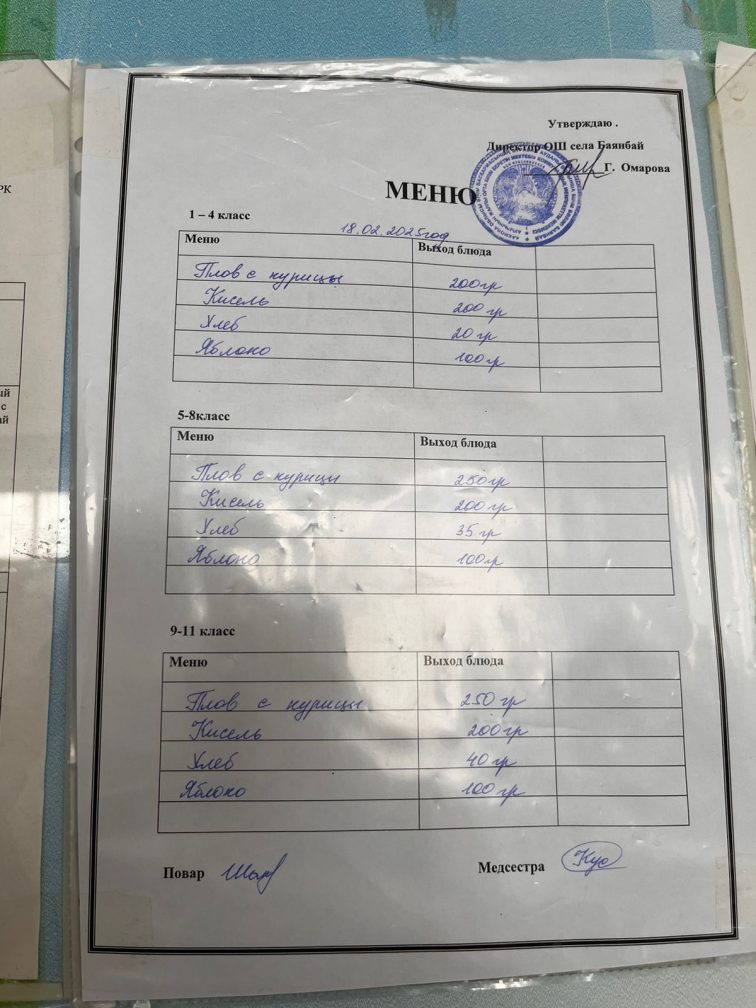 Утверждаю .
Директор ОШ села Баянбай
Г. Омарова
МЕНЮ
1 – 4 класс
18.02.2025год
Меню Выход блюда
Плов с курицы 200гр
Кисель 200гр
Хлеб 20гр
Яблоко 100гр
5-8класс
Меню Выход блюда
Плов с курицы 250гр
Кисель 200гр
Хлеб 35гр
Яблоко 100гр
9-11 класс
Меню Выход блюда
Плов с курицы 250гр
Кисель 200гр
Хлеб 40гр
Яблоко 100гр
Повар
Медсестра
РК